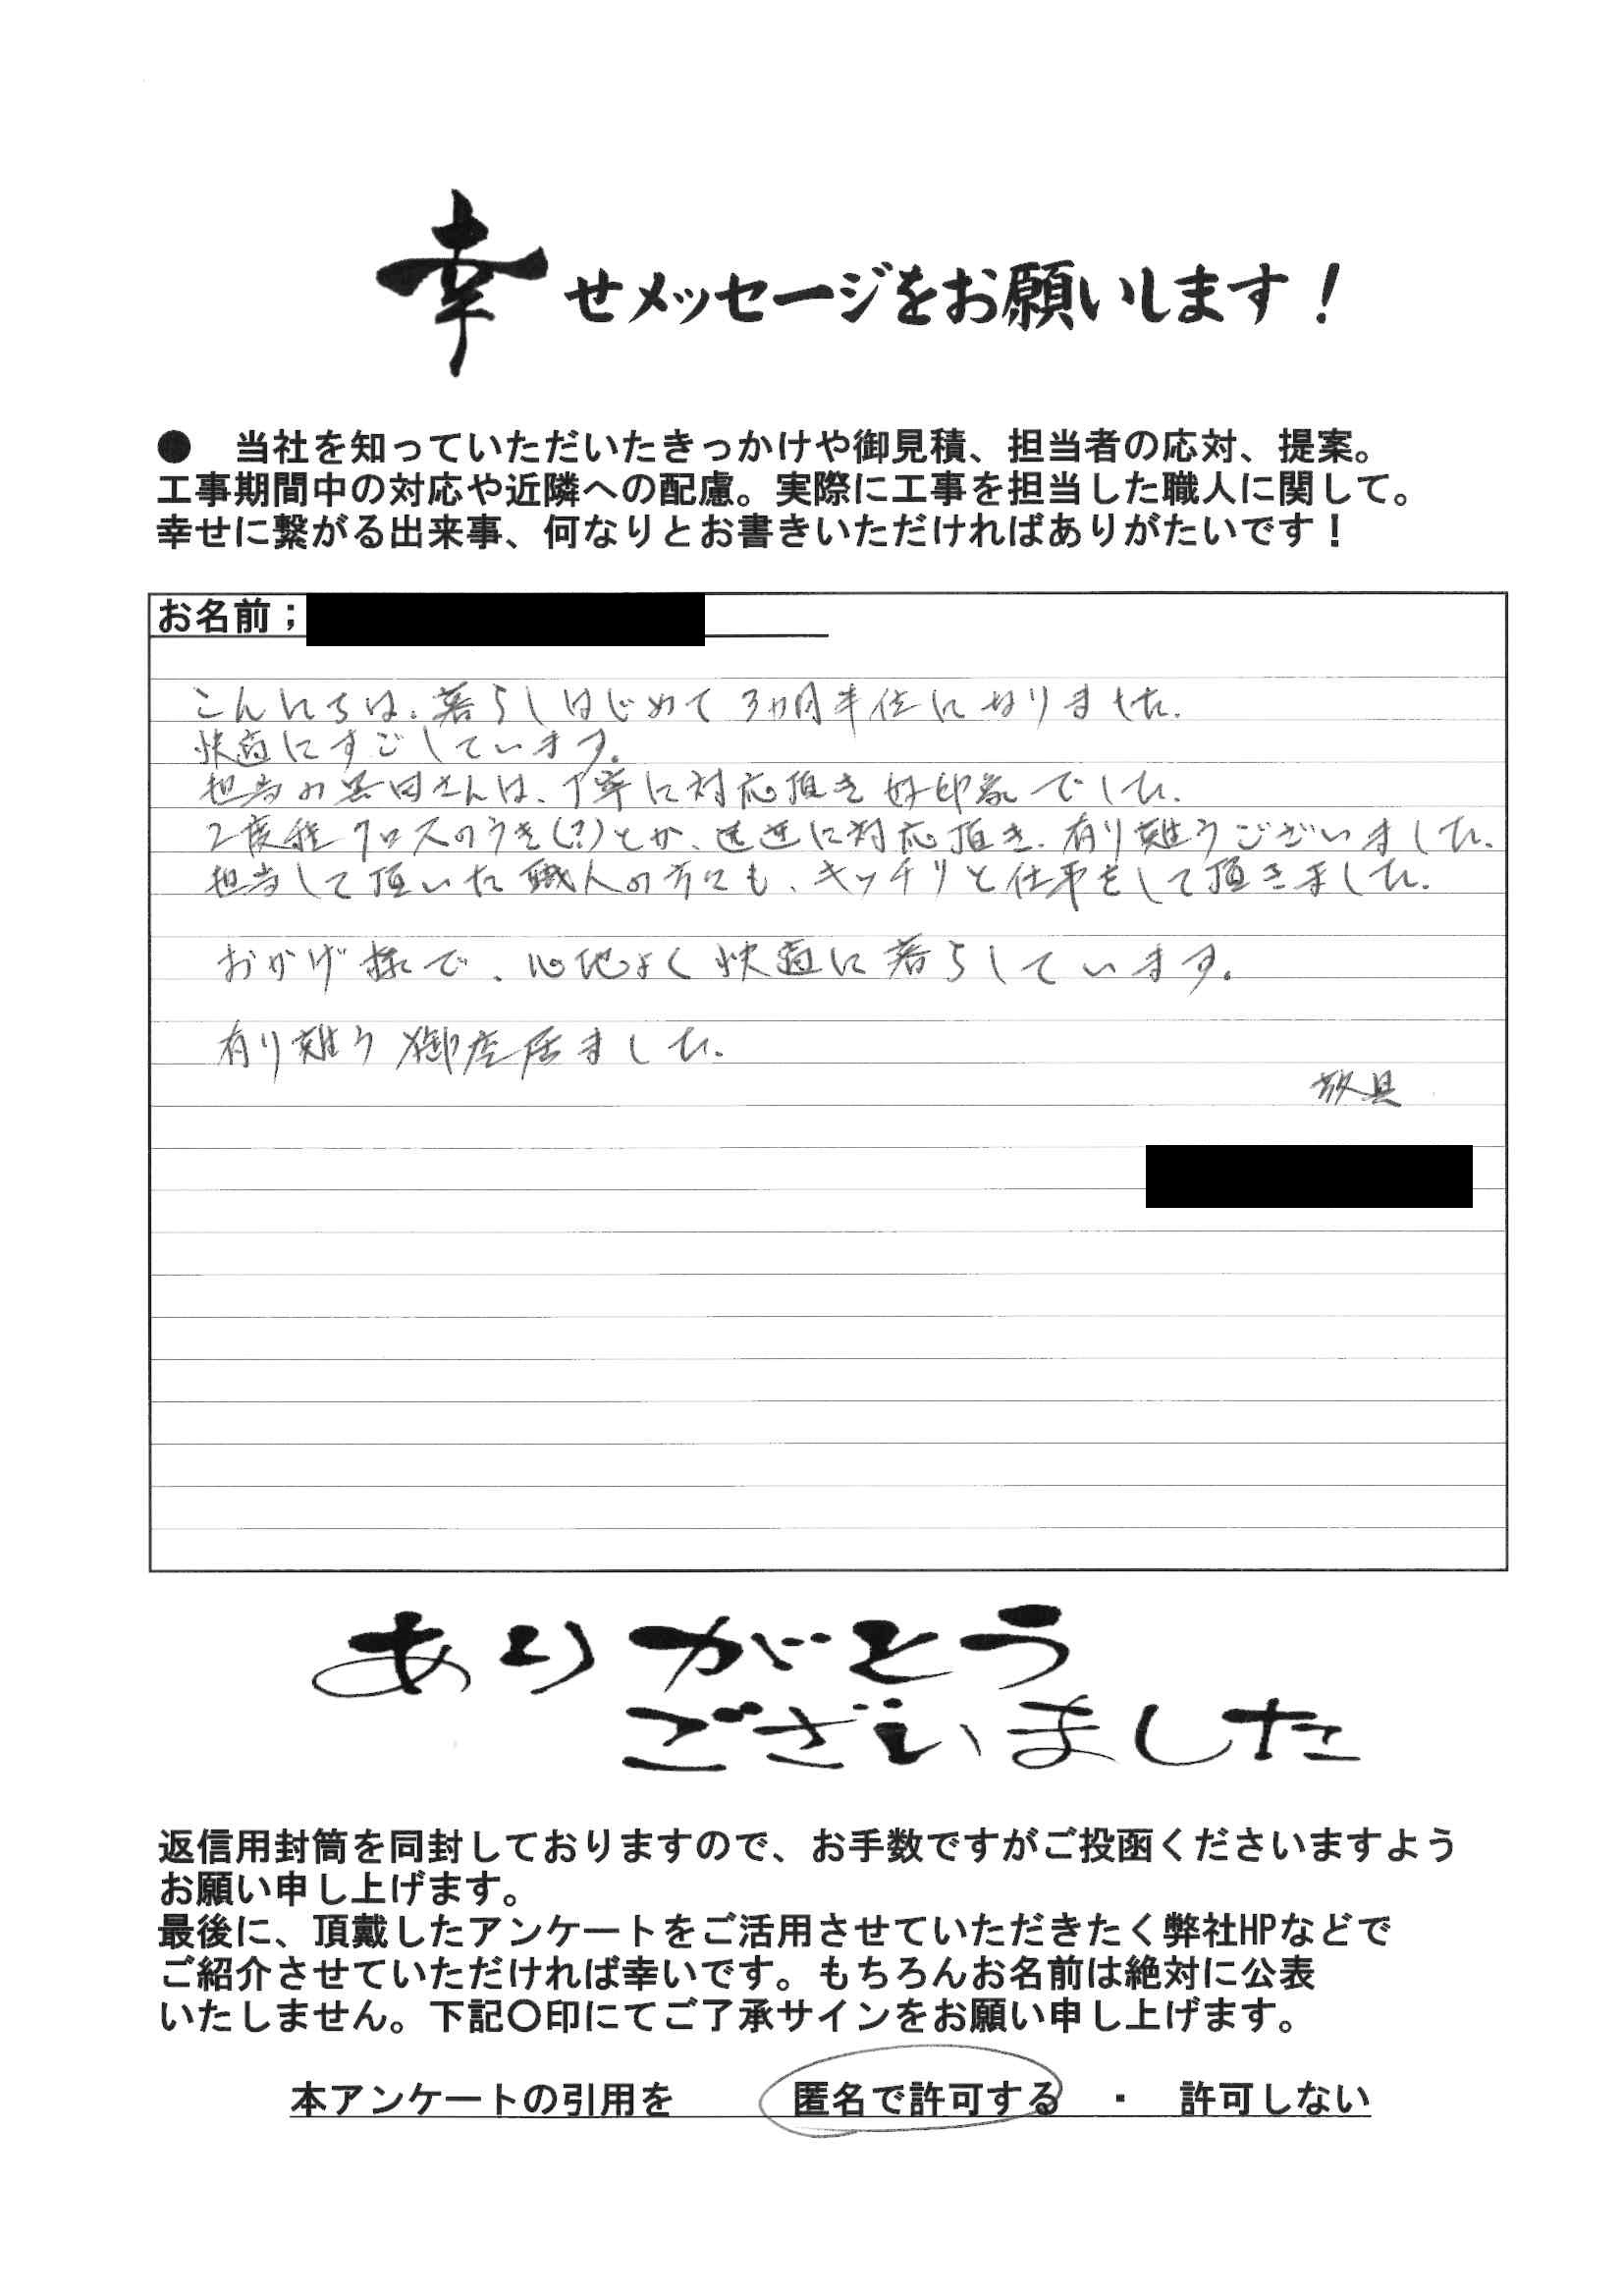 幸せメッセージをお願いします！
● 当社を知っていただいたきっかけや御見積、担当者の応対、提案。
工事期間中の対応や近隣への配慮。実際に工事を担当した職人に関して。
幸せに繋がる出来事、何なりとお書きいただければありがたいです！
お名前；
こんにちは。暮らしはじめて3ヵ月半位になりました。
快適にすごしています。
担当の さんは、丁寧に対応頂き好印象でした。
2度程クロスのうき(?)とか、迅速に対応頂き、有り難うございました。
担当して頂いた職人の方にも、キッチリと仕事をして頂きました。
おかげ様で、心地よく快適に暮らしています。
有り難う御座居ました。
敬具
ありがとう
ございました
返信用封筒を同封しておりますので、お手数ですがご投函くださいますよう
お願い申し上げます。
最後に、頂戴したアンケートをご活用させていただきたく弊社HPなどで
ご紹介させていただければ幸いです。もちろんお名前は絶対に公表
いたしません。下記〇印にてご了承サインをお願い申し上げます。
本アンケートの引用を 匿名で許可する ・ 許可しない